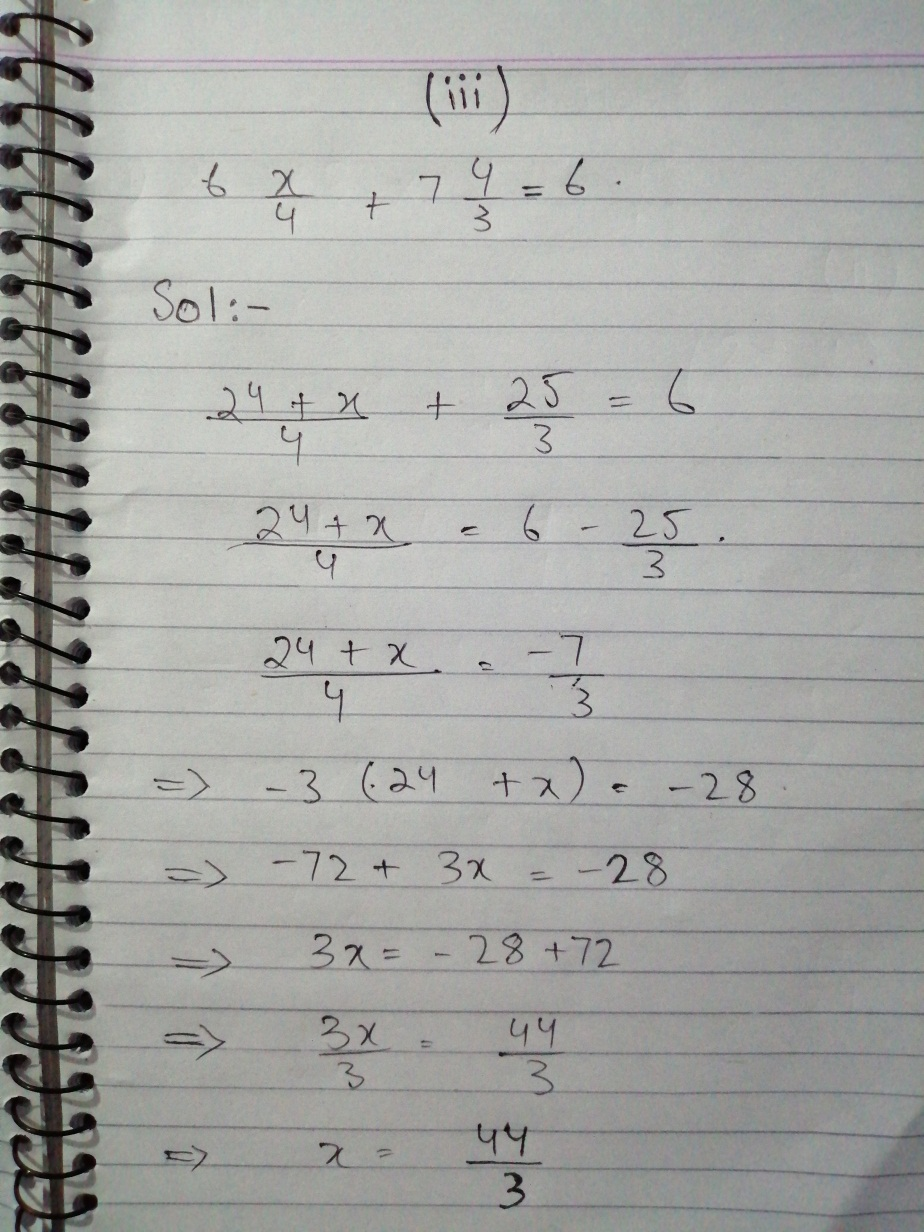 (iii)
6 x/4 + 7 4/3 = 6 .
Sol:-
24 + x/4 + 25/3 = 6
24 + x/4 = 6 - 25/3 .
24 + x/4 = -7/3
=> -3 (24 + x) = -28
=> -72 + 3x = -28
=> 3x = -28 + 72
=> 3x/3 = 44/3
=> x = 44/3